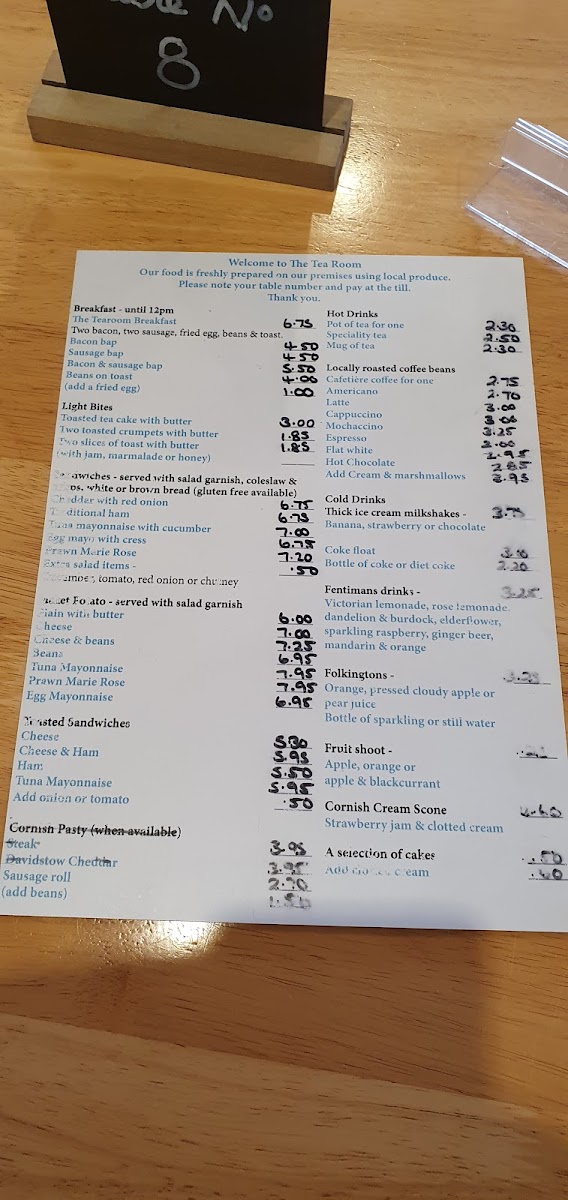 Nº
8
Welcome to The Tea Room
Our food is freshly prepared on our premises using local produce.
Please note your table number and pay at the till.
Thank you.
Breakfast - until 12pm
The Tearoom Breakfast 6.75
Two bacon, two sausage, fried egg, beans & toast.
Bacon bap 4.50
Sausage bap 4.50
Bacon & sausage bap 5.50
Beans on toast 4.00
(add a fried egg) 1.00
Light Bites
Toasted tea cake with butter 3.00
Two toasted crumpets with butter 1.85
Two slices of toast with butter 1.85
(with jam, marmalade or honey)
Sandwiches - served with salad garnish, coleslaw &
white or brown bread (gluten free available)
Cheddar with red onion 6.75
Traditional ham 6.75
Tuna mayonnaise with cucumber 7.00
Egg mayo with cress 6.75
Prawn Marie Rose 7.20
Extra salad items - .50
tomato, red onion or chutney
Jacket Potato - served with salad garnish
Plain with butter 6.00
Cheese 7.00
Cheese & beans 7.25
Beans 6.95
Tuna Mayonnaise 7.95
Prawn Marie Rose 7.95
Egg Mayonnaise 6.95
Toasted Sandwiches
Cheese 5.30
Cheese & Ham 5.95
Ham 5.50
Tuna Mayonnaise 5.95
Add onion or tomato .50
Cornish Pasty (when available)
Steak 3.95
Davidstow Cheddar 3.95
Sausage roll 2.20
(add beans)
Hot Drinks
Pot of tea for one 2.30
Speciality tea 2.50
Mug of tea 2.30
Locally roasted coffee beans
Cafetière coffee for one 2.75
Americano 2.70
Latte 3.00
Cappuccino 3.00
Mochaccino 3.25
Espresso 2.00
Flat white 2.95
Hot Chocolate 2.85
Add Cream & marshmallows 3.95
Cold Drinks
Thick ice cream milkshakes - 3.75
Banana, strawberry or chocolate
Coke float
Bottle of coke or diet coke 2.20
Fentimans drinks - 3.25
Victorian lemonade, rose lemonade,
dandelion & burdock, elderflower,
sparkling raspberry, ginger beer,
mandarin & orange
Folkingtons -
Orange, pressed cloudy apple or
pear juice
Bottle of sparkling or still water
Fruit shoot -
Apple, orange or
apple & blackcurrant
Cornish Cream Scone
Strawberry jam & clotted cream
A selection of cakes
Add cream